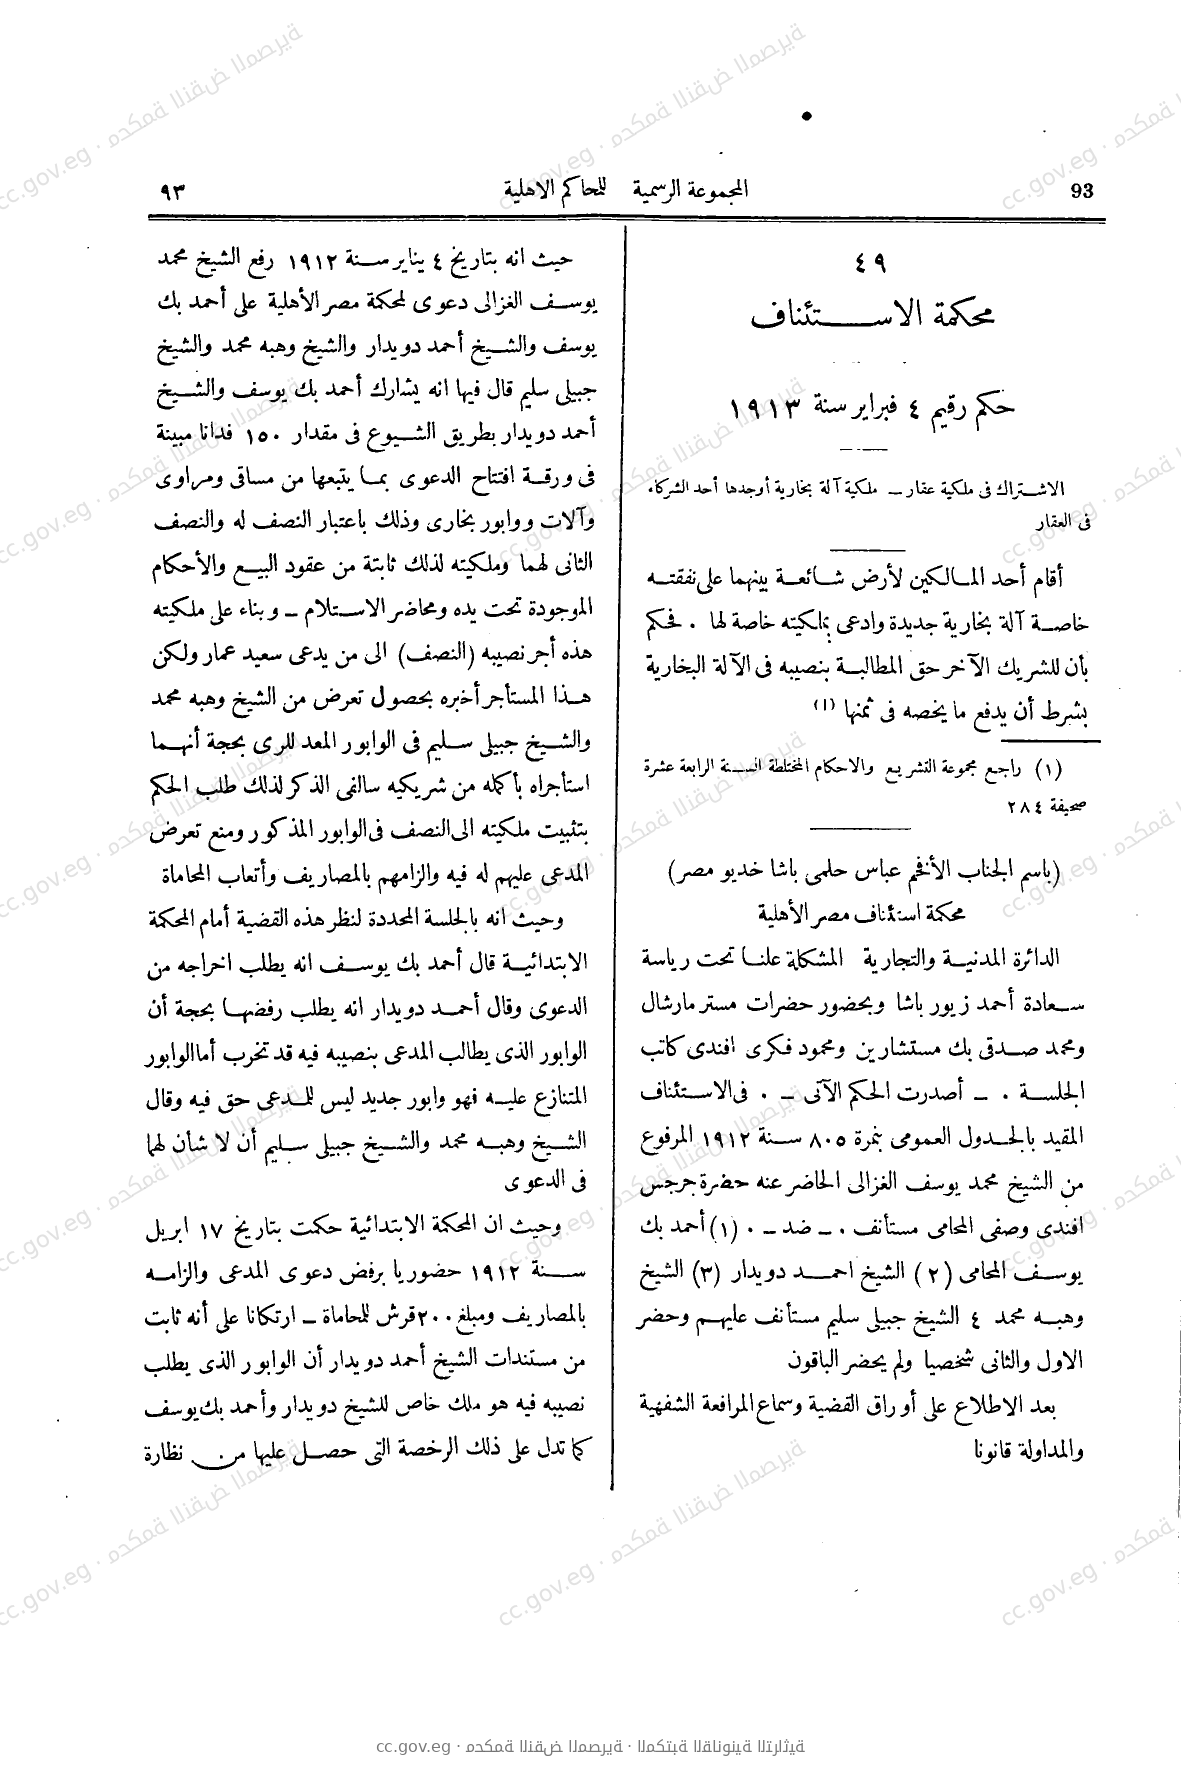 93
المجموعة الرسمية للمحاكم الاهلية
٩٣
٤٩
محكمة الاستئناف
حكم رقيم ٤ فبراير سنة ١٩١٣
الاشتراك فى ملكية عقار – ملكية آلة بخارية أوجدها أحد الشركاء
فى العقار
أقام أحد المالكين لأرض شائعة بينهما على نفقته
خاصة آلة بخارية جديدة وادعى بملكيته خاصة لها . فحكم
بأن للشريك الآخر حق المطالبة بنصيبه فى الآلة البخارية
بشرط أن يدفع ما يخصه فى ثمنها (١)
(١) راجع مجموعة التشريع والاحكام المختلطة السنة الرابعة عشرة
صحيفة ٢٨٤
(باسم الجناب الأفخم عباس حلمى باشا خديو مصر)
محكمة استئناف مصر الأهلية
الدائرة المدنية والتجارية المشكلة علنا تحت رياسة
سعادة أحمد زيور باشا وبحضور حضرات مستر مارشال
ومحمد صدقى بك مستشارين ومحمود فكرى افندى كاتب
الجلسة . – أصدرت الحكم الآتى – . فى الاستئناف
المقيد بالجدول العمومى بنمرة ٨٠٥ سنة ١٩١٢ المرفوع
من الشيخ محمد يوسف الغزالى الحاضر عنه حضرة جرجس
افندى وصفى المحامى مستأنف . – ضد – . (١) أحمد بك
يوسف المحامى (٢) الشيخ احمد دويدار (٣) الشيخ
وهبه محمد ٤ الشيخ جبيلى سليم مستأنف عليهم وحضر
الاول والثانى شخصيا ولم يحضر الباقون
بعد الاطلاع على أوراق القضية وسماع المرافعة الشفهية
والمداولة قانونا
حيث انه بتاريخ ٤ يناير سنة ١٩١٢ رفع الشيخ محمد
يوسف الغزالى دعوى لمحكمة مصر الأهلية على أحمد بك
يوسف والشيخ أحمد دويدار والشيخ وهبه محمد والشيخ
جبيلى سليم قال فيها انه يشارك أحمد بك يوسف والشيخ
أحمد دويدار بطريق الشيوع فى مقدار ١٥٠ فدانا مبينة
فى ورقة افتتاح الدعوى بما يتبعها من مساقى ومراوى
وآلات ووابور بخارى وذلك باعتبار النصف له والنصف
الثانى لهما وملكيته لذلك ثابتة من عقود البيع والأحكام
الموجودة تحت يده ومحاضر الاستلام – وبناء على ملكيته
هذه أجر نصيبه (النصف) الى من يدعى سعيد عمار ولكن
هذا المستأجر أخبره بحصول تعرض من الشيخ وهبه محمد
والشيخ جبيلى سليم فى الوابور المعد للرى بحجة أنهما
استأجراه بأكمله من شريكيه سالفى الذكر لذلك طلب الحكم
بتثبيت ملكيته الى النصف فى الوابور المذكور ومنع تعرض
المدعى عليهم له فيه والزامهم بالمصاريف وأتعاب المحاماة
وحيث انه بالجلسة المحددة لنظر هذه القضية أمام المحكمة
الابتدائية قال أحمد بك يوسف انه يطلب اخراجه من
الدعوى وقال أحمد دويدار انه يطلب رفضها بحجة أن
الوابور الذى يطالب المدعى بنصيبه فيه قد تخرب أما الوابور
المتنازع عليه فهو وابور جديد ليس للمدعى حق فيه وقال
الشيخ وهبه محمد والشيخ جبيلى سليم أن لا شأن لهما
فى الدعوى
وحيث ان المحكمة الابتدائية حكمت بتاريخ ١٧ ابريل
سنة ١٩١٢ حضوريا برفض دعوى المدعى والزامه
بالمصاريف ومبلغ ٢٠٠ قرش للمحاماة – ارتكانا على أنه ثابت
من مستندات الشيخ أحمد دويدار أن الوابور الذى يطلب
نصيبه فيه هو ملك خاص للشيخ دويدار وأحمد بك يوسف
كما تدل على ذلك الرخصة التى حصل عليها من نظارة
cc.gov.eg · محكمة النقض المصرية · المكتبة القانونية التراثية